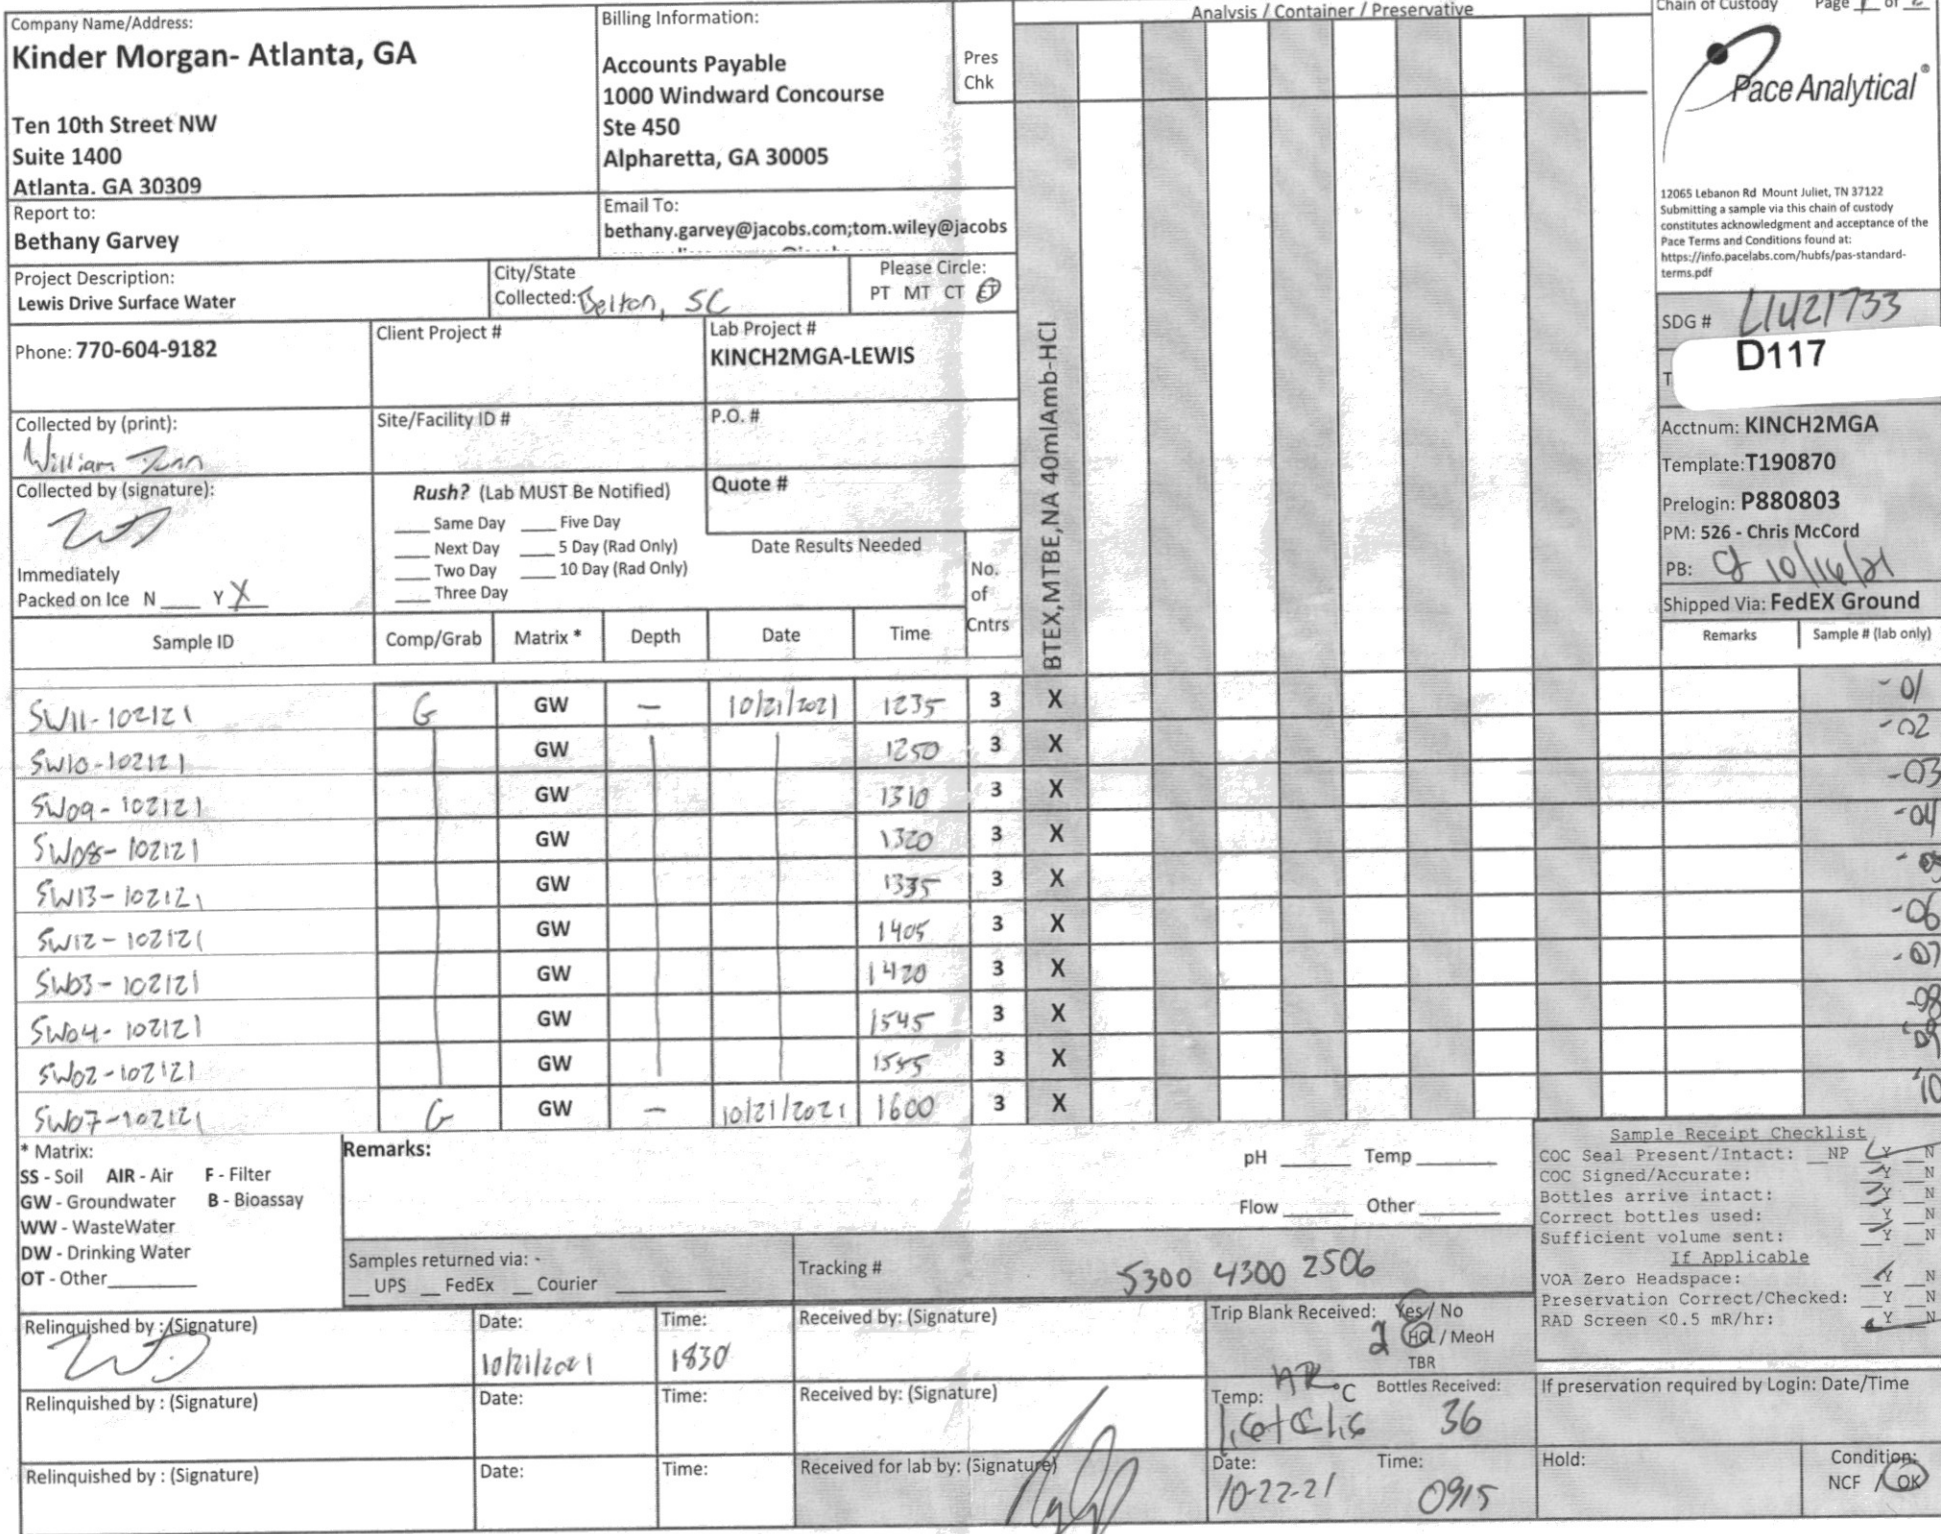 Company Name/Address:
Kinder Morgan- Atlanta, GA
Ten 10th Street NW
Suite 1400
Atlanta. GA 30309
Billing Information:
Accounts Payable
1000 Windward Concourse
Ste 450
Alpharetta, GA 30005
Pres
Chk
Analysis / Container / Preservative
Chain of Custody Page 1 of
Pace Analytical®
12065 Lebanon Rd Mount Juliet, TN 37122
Submitting a sample via this chain of custody
constitutes acknowledgment and acceptance of the
Pace Terms and Conditions found at:
https://info.pacelabs.com/hubfs/pas-standard-
terms.pdf
Report to:
Bethany Garvey
Email To:
bethany.garvey@jacobs.com;tom.wiley@jacobs
Project Description:
Lewis Drive Surface Water
City/State
Collected: Belton, SC
Please Circle:
PT MT CT ET
Phone: 770-604-9182
Client Project #
Lab Project #
KINCH2MGA-LEWIS
SDG # L1421733
D117
T
Collected by (print):
William
Site/Facility ID #
P.O. #
Acctnum: KINCH2MGA
Template: T190870
Prelogin: P880803
PM: 526 - Chris McCord
PB: 10/16/21
Shipped Via: FedEX Ground
Collected by (signature):
Rush? (Lab MUST Be Notified)
___ Same Day ___ Five Day
___ Next Day ___ 5 Day (Rad Only)
___ Two Day ___ 10 Day (Rad Only)
___ Three Day
Quote #
Date Results Needed
Immediately
Packed on Ice N ___ Y X
No.
of
Cntrs
BTEX,MTBE,NA 40mlAmb-HCl
Sample ID Comp/Grab Matrix * Depth Date Time Remarks Sample # (lab only)
SW11-102121 G GW — 10/21/2021 1235 3 X -01
SW10-102121 GW 1250 3 X -02
SW09-102121 GW 1310 3 X -03
SW08-102121 GW 1320 3 X -04
SW13-102121 GW 1335 3 X -05
SW12-102121 GW 1405 3 X -06
SW03-102121 GW 1420 3 X -07
SW04-102121 GW 1545 3 X -08
SW02-102121 GW 1555 3 X -09
SW07-102121 G GW — 10/21/2021 1600 3 X -10
* Matrix:
SS - Soil AIR - Air F - Filter
GW - Groundwater B - Bioassay
WW - WasteWater
DW - Drinking Water
OT - Other
Remarks:
pH ___ Temp ___
Flow ___ Other ___
Samples returned via:
__ UPS __ FedEx __ Courier
Tracking # 5300 4300 2506
Sample Receipt Checklist
COC Seal Present/Intact: __NP __Y __N
COC Signed/Accurate: __Y __N
Bottles arrive intact: __Y __N
Correct bottles used: __Y __N
Sufficient volume sent: __Y __N
If Applicable
VOA Zero Headspace: __Y __N
Preservation Correct/Checked: __Y __N
RAD Screen <0.5 mR/hr: __Y __N
Relinquished by : (Signature)
Date:
10/21/2021
Time:
1830
Received by: (Signature)
Trip Blank Received: Yes / No
2 HCL / MeoH
TBR
Relinquished by : (Signature)
Date:
Time:
Received by: (Signature)
Temp: °C
Bottles Received:
36
If preservation required by Login: Date/Time
Relinquished by : (Signature)
Date:
Time:
Received for lab by: (Signature)
Date:
10-22-21
Time:
0915
Hold:
Condition:
NCF / OK